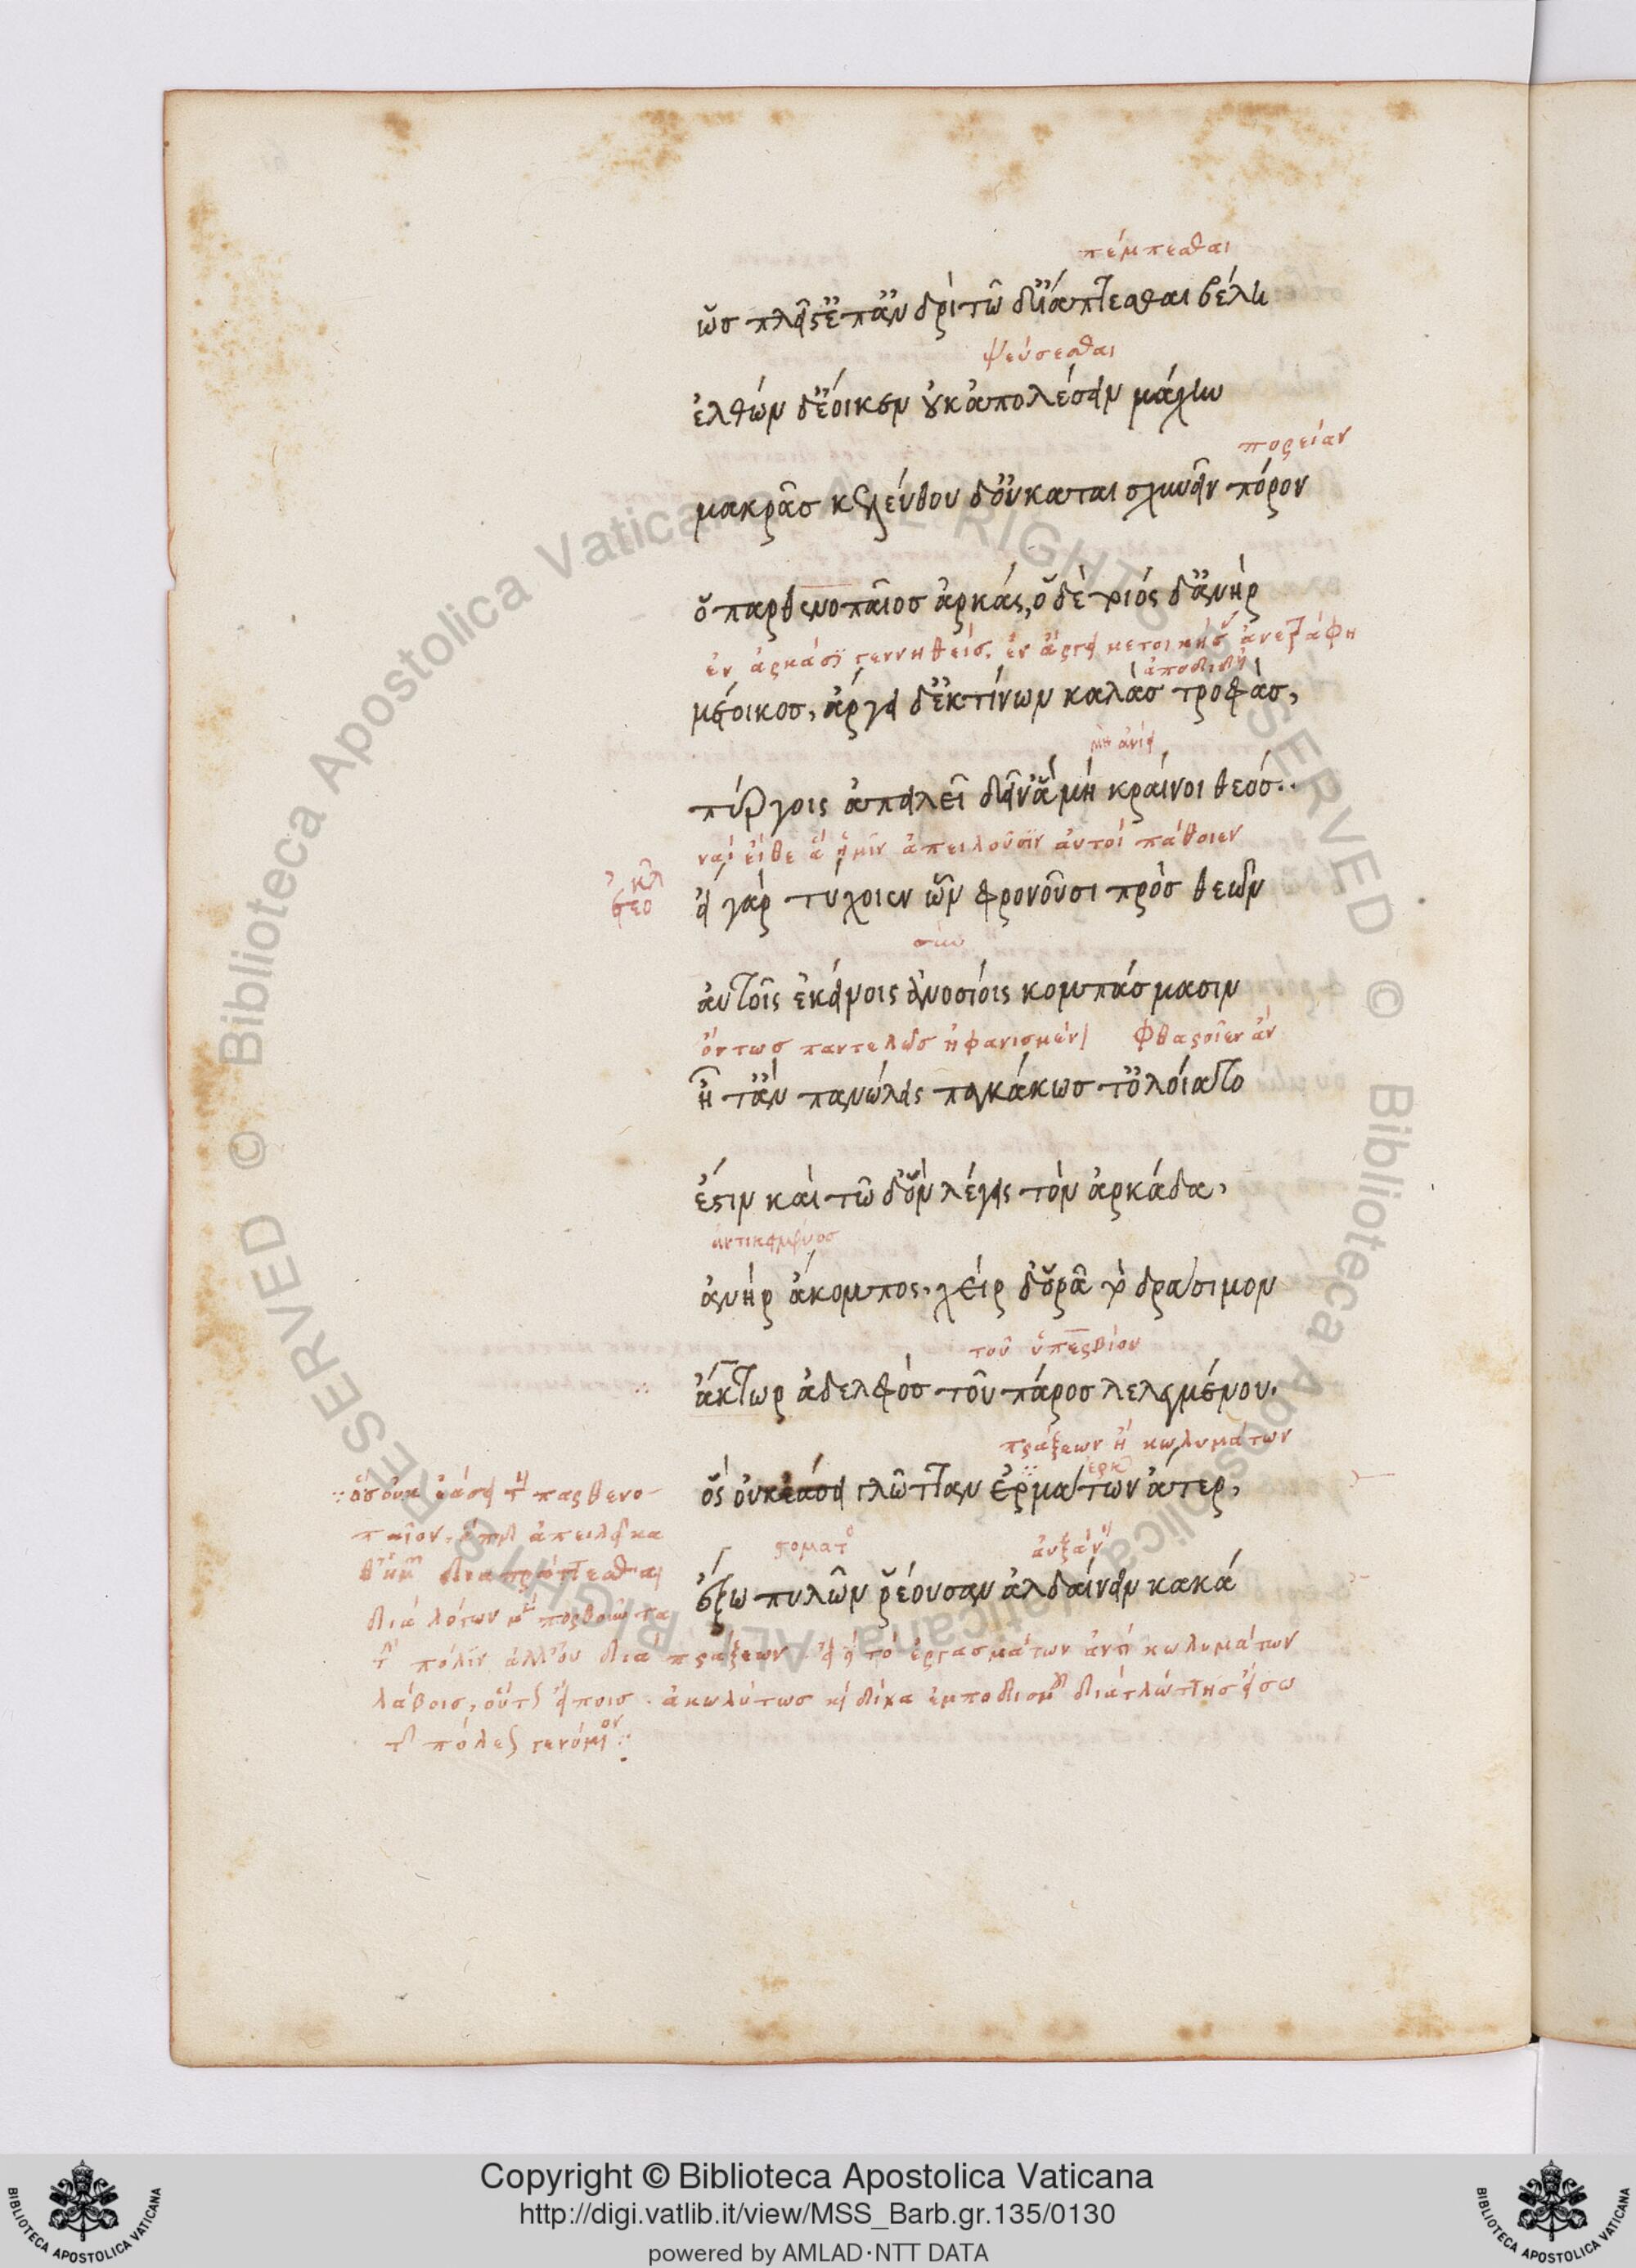 πέμπεσθαι
ὡς πλεῖστ' ἐπ' ἀνδρὶ τῶδ' ἰάπτεσθαι βέλη
ψεύσεσθαι
ἐλθὼν δ' ἔοικεν οὐ καπηλεύσειν μάχην
πορείαν
μακρᾶς κελεύθου δ' οὐ καταισχυνεῖν πόρον
ὁ παρθενοπαῖος ἀρκάς, ὁ δὲ τοιόσδ' ἀνὴρ
ἐν ἀρκάσι γεννηθείς. ἐν ἄργει ἀνετράφη
μέτοικος, ἄργει δ' ἐκτίνων καλὰς τροφάς,
πύργοις ἀπειλεῖ δείν' ἃ μὴ κραίνοι θεός.
εἴθε ἃ ἡμῖν ἀπειλοῦσιν αὐτοὶ πάθοιεν
εἰ γὰρ τύχοιεν ὧν φρονοῦσι πρὸς θεῶν
αὐτοῖς ἐκείνοις ἀνοσίοις κομπάσμασιν
ὄντως παντελῶς ἠφανισμένοι φθαροῖεν ἂν
ἦ τ' ἂν πανώλεις παγκάκως τ' ὀλοίατο
ἔστιν καὶ τῶδ' ὃν λέγεις τὸν ἀρκάδα,
ἀντικείμενος
ἀνὴρ ἄκομπος, χεὶρ δ' ὁρᾶ τὸ δράσιμον
τοῦ ὑπερβίου
ἄκτωρ ἀδελφὸς τοῦ πάρος λελεγμένου.
πράξεων ἢ κωλυμάτων
ὃς οὐκ ἐάσει γλῶτταν ἐργμάτων ἄτερ,
στόματος
αὐξάνειν
ἔσω πυλῶν ῥέουσαν ἀλδαίνειν κακά
ὃς οὐκ ἐάσει τὸν παρθενο-
παῖον
διὰ λόγων
πόλιν ἀλλ' οὐ διὰ πράξεων εἰ τὸ ἐργασμάτων ἀντὶ κωλυμάτων
λάβοις, οὕτως εἴποις ἀκωλύτως καὶ δίχα ἐμποδισμοῦ διὰ γλώττης εἴσω
τῆς πόλεως γενόμενον
Copyright © Biblioteca Apostolica Vaticana
http://digi.vatlib.it/view/MSS_Barb.gr.135/0130
powered by AMLAD·NTT DATA
BIBLIOTECA APOSTOLICA VATICANA
BIBLIOTECA APOSTOLICA VATICANA